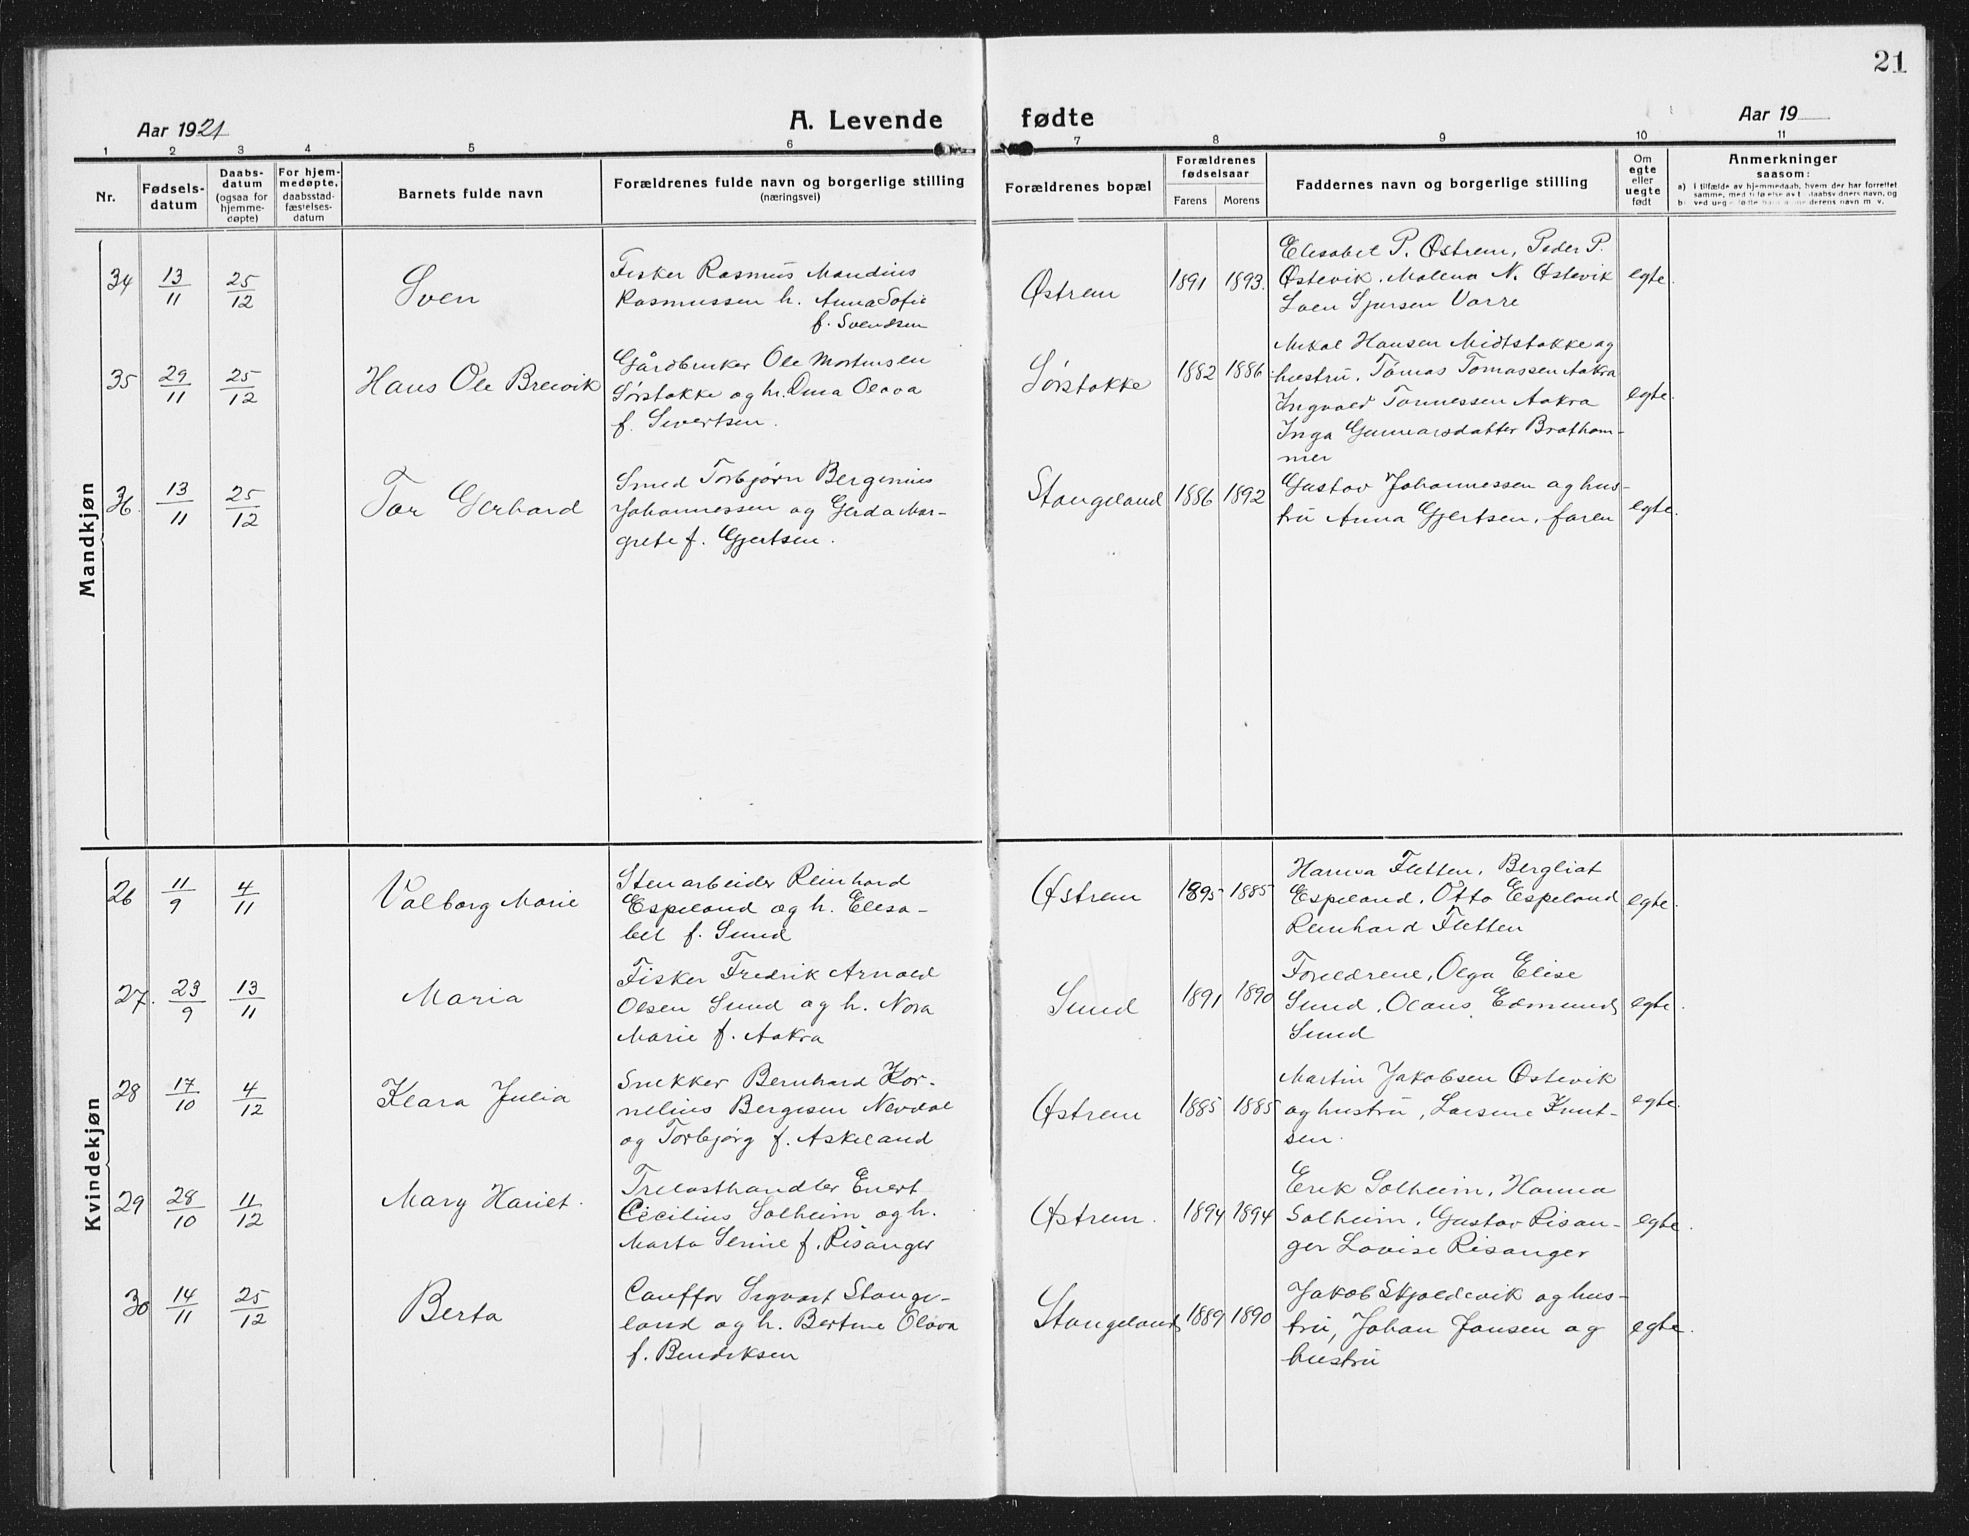 21
Aar 1921
A. Levende fødte
Aar 19
1 2 3 4 5 6 7 8 9 10 11
Nr.
Fødsels-
datum
Daabs-
datum
(ogsaa for
hjemme-
døpte)
For hjem-
medøpte,
daabsstad-
fæstelses-
datum
Barnets fulde navn
Forældrenes fulde navn og borgerlige stilling
(næringsvei)
Forældrenes bopæl
Forældrenes
fødselsaar
Farens Morens
Faddernes navn og borgerlige stilling
Om
egte
eller
uegte
født
Anmerkninger
saasom:
a) I tilfælde av hjemmedaab, hvem der har forrettet
Mandkjøn
34 13/11 25/12
Sven
Fisker Rasmus Mandius
Rasmussen h. Anna Sofie
f. Svendsen
Østrem
1891 1893.
Elisabet P. Østrem, Peder P.
Østevik, Malena N. Østevik
Sjursen Varre
egte.
35 29/11 25/12
Hans Ole Breivik
Gårdbruker Ole Mortensen
Sørstokke og h. Olava
f. Sivertsen.
Sørstokke
1882 1886
Mikal Hansen Midtstokke og
hustru, Tomas Tomassen Aakra
Ingvald Tønnessen Aakra
Inga Gunnarsdatter Bratham-
mer
egte.
36. 13/11 25/12
Tor Gerhard
Smed Torbjørn Berginius
Johannessen og Gerda Mar-
grete f. Gjertsen.
Stangeland
1886 1892
Gustav Johannessen og hus-
tru Anna Gjertsen, faren
egte.
Kvindekjøn
26 11/9 4/11
Valborg Marie
Stenarbeider Reinhard
Espeland og h. Elisa-
bet f. Sund
Østrem
1895 1885
Hanna Fletten, Bergliot
Espeland, Otto Espeland
Reinhard Fletten
egte.
27. 23/9 13/11
Maria
Fisker Fredrik Arnold
Olsen Sund og h. Nora
Marie f. Aakra
Sund
1891 1890
Foreldrene, Olga Elise
Sund, Olaus Edmund
Sund
egte.
28 17/10 4/12
Klara Julia
Snekker Bernhard Kor-
nelius Bergesen Nevdal
og Torbjørg f. Askeland
Østrem
1885 1885
Martin Jakobsen Østevik
og hustru, Larsine Knut-
sen.
egte.
29 28/10 11/12
Mary Hariet.
Trelasthandler Enert
Cicilius Solheim og h.
Marta Serine f. Risanger
Østrem.
1894 1894
Erik Solheim, Hanna
Solheim, Gustav Risan-
ger Lovise Risanger
egte.
30 14/11 25/12
Berta
Sigvart Stange-
land og h. Bertine Olava
f. Bendiksen
Stangeland
1889 1890
Jakob Skjoldevik og hus-
tru, Johan Jansen og
hustru
egte.